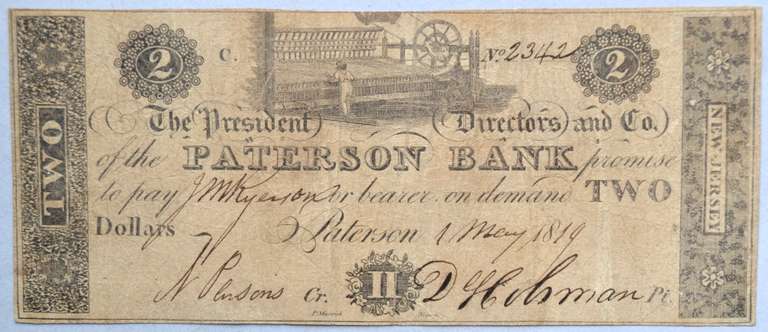 2 C. No 2342 2
The President Directors and Co.
of the PATERSON BANK promise
to pay J M Ryerson or bearer on demand TWO
Dollars Paterson 1 May 1819
N Persons Cr. II D Holsman Pt.
TWO
NEW-JERSEY